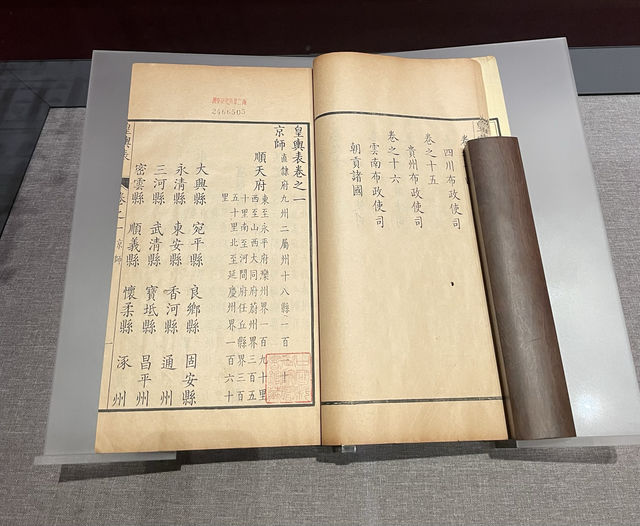 四川布政使司
卷之十五
貴州布政使司
卷之十六
雲南布政使司
朝貢諸國
2466505
皇輿表卷之一
京師 直隸府九州二屬州十八縣一百二十
順天府 東至永平府灤州界一百九十里
西至山西大同府蔚州界三百五
十里南至河間府任丘縣界三百
五十里北至延慶州界一百六十
里
大興縣 宛平縣 良鄉縣 固安縣
永清縣 東安縣 香河縣 通州
三河縣 武清縣 寶坻縣 昌平州
密雲縣 順義縣 懷柔縣 涿州
皇輿表 卷之一 京師